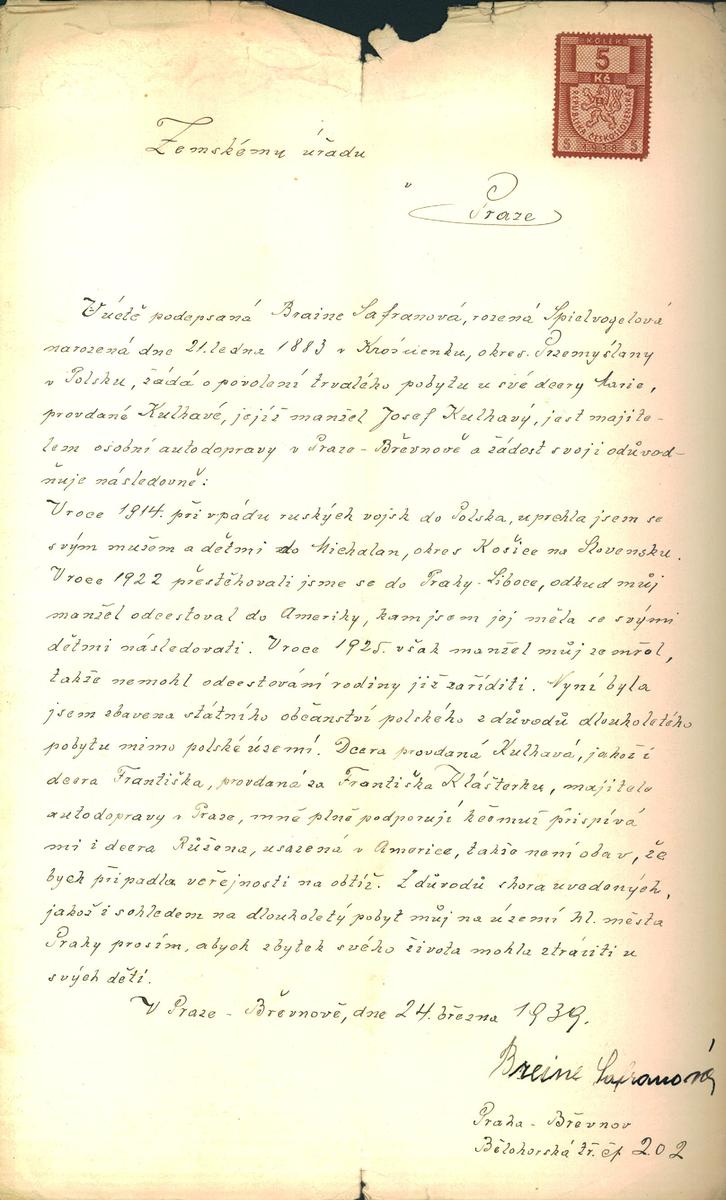 KOLEK
5
Kč
REPUBLIKA ČESKOSLOVENSKÁ
5 1938 5
Zemskému úřadu
v
Praze
Vúctě podepsaná Braine Safranová, rozená Spielvogelová
narozená dne 21. ledna 1883 v Krościenku, okres. Przemyślany
v Polsku, žádá o povolení trvalého pobytu u své dcery Marie,
provdané Kulhavé, jejíž manžel Josef Kulhavý, jest majite-
lem osobní autodopravy v Praze-Břevnově a žádost svoji odůvod-
ňuje následovně:
Vroce 1914. při vpádu ruských vojsk do Polska, uprchla jsem se
svým mužem a dětmi do Michalan, okres Košice na Slovensku.
Vroce 1922 přestěhovali jsme se do Prahy-Liboce, odkud můj
manžel odcestoval do Ameriky, kam jsem jej měla se svými
dětmi následovati. Vroce 1925. však manžel můj zemřel,
takže nemohl odcestování rodiny již zaříditi. Nyní byla
jsem zbavena státního občanství polského z důvodů dlouholetého
pobytu mimo polské území. Dcera provdaná Kulhavá, jakož i
dcera Františka, provdaná za Františka Klášterku, majitele
autodopravy v Praze, mně plně podporují kčemuž přispívá
mi i dcera Růžena, usazená v Americe, takže není obav, že
bych připadla veřejnosti na obtíž. Z důvodů shora uvedených,
jakož i sohledem na dlouholetý pobyt můj na území hl. města
Prahy prosím, abych zbytek svého života mohla ztráviti u
svých dětí.
V Praze - Břevnově, dne 24. března 1939.
Breine Safranová
Praha - Břevnov
Bělohorská tř. čp 202